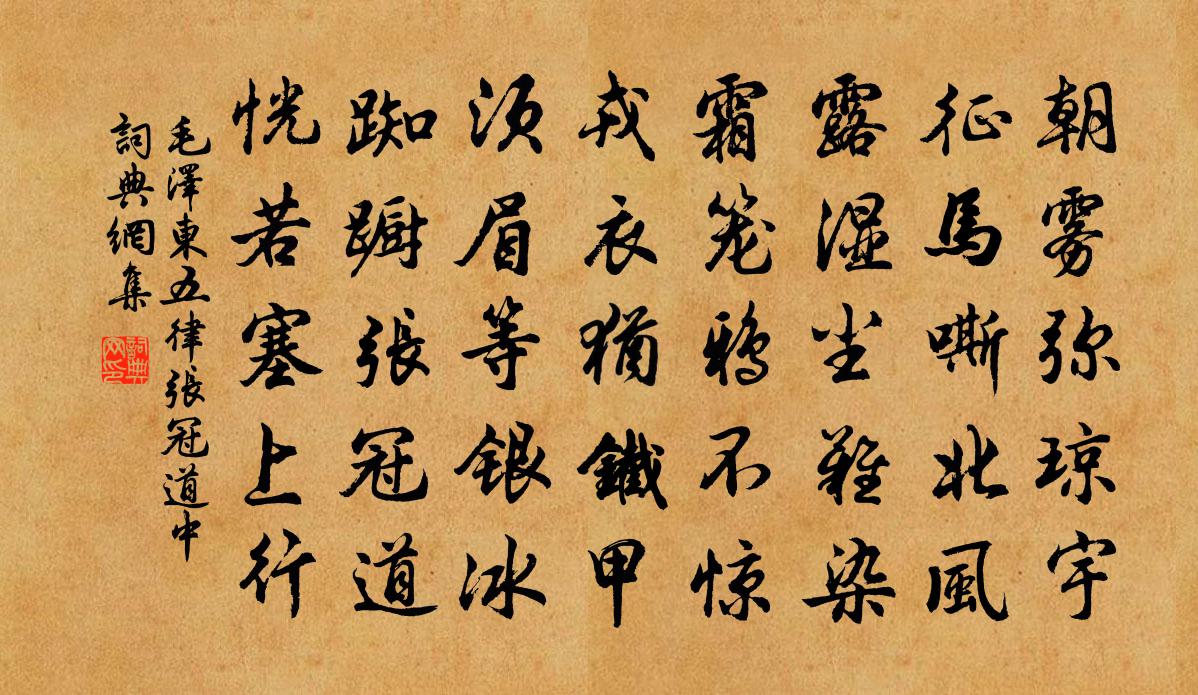 朝雾弥琼宇
征馬嘶北風
露湿尘難染
霜笼鸦不惊
戎衣犹鐵甲
须眉等银冰
踟蹰張冠道
恍若塞上行
毛澤東五律張冠道中
詞典網集
詞典网印